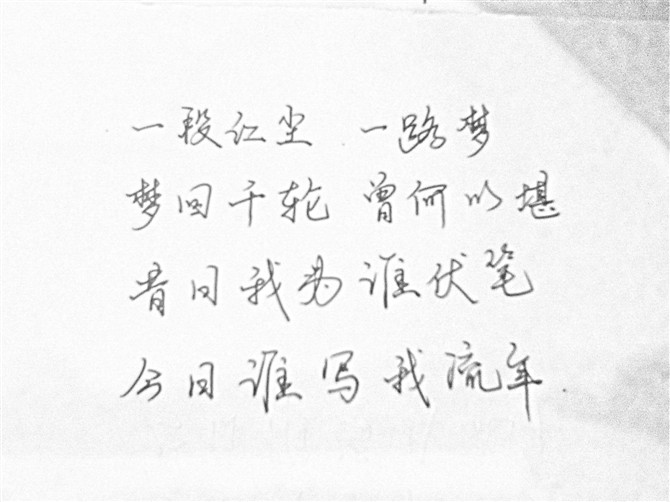 一段红尘 一路梦
梦回千轮 曾何以堪
昔日我为谁伏笔
今日谁写我流年